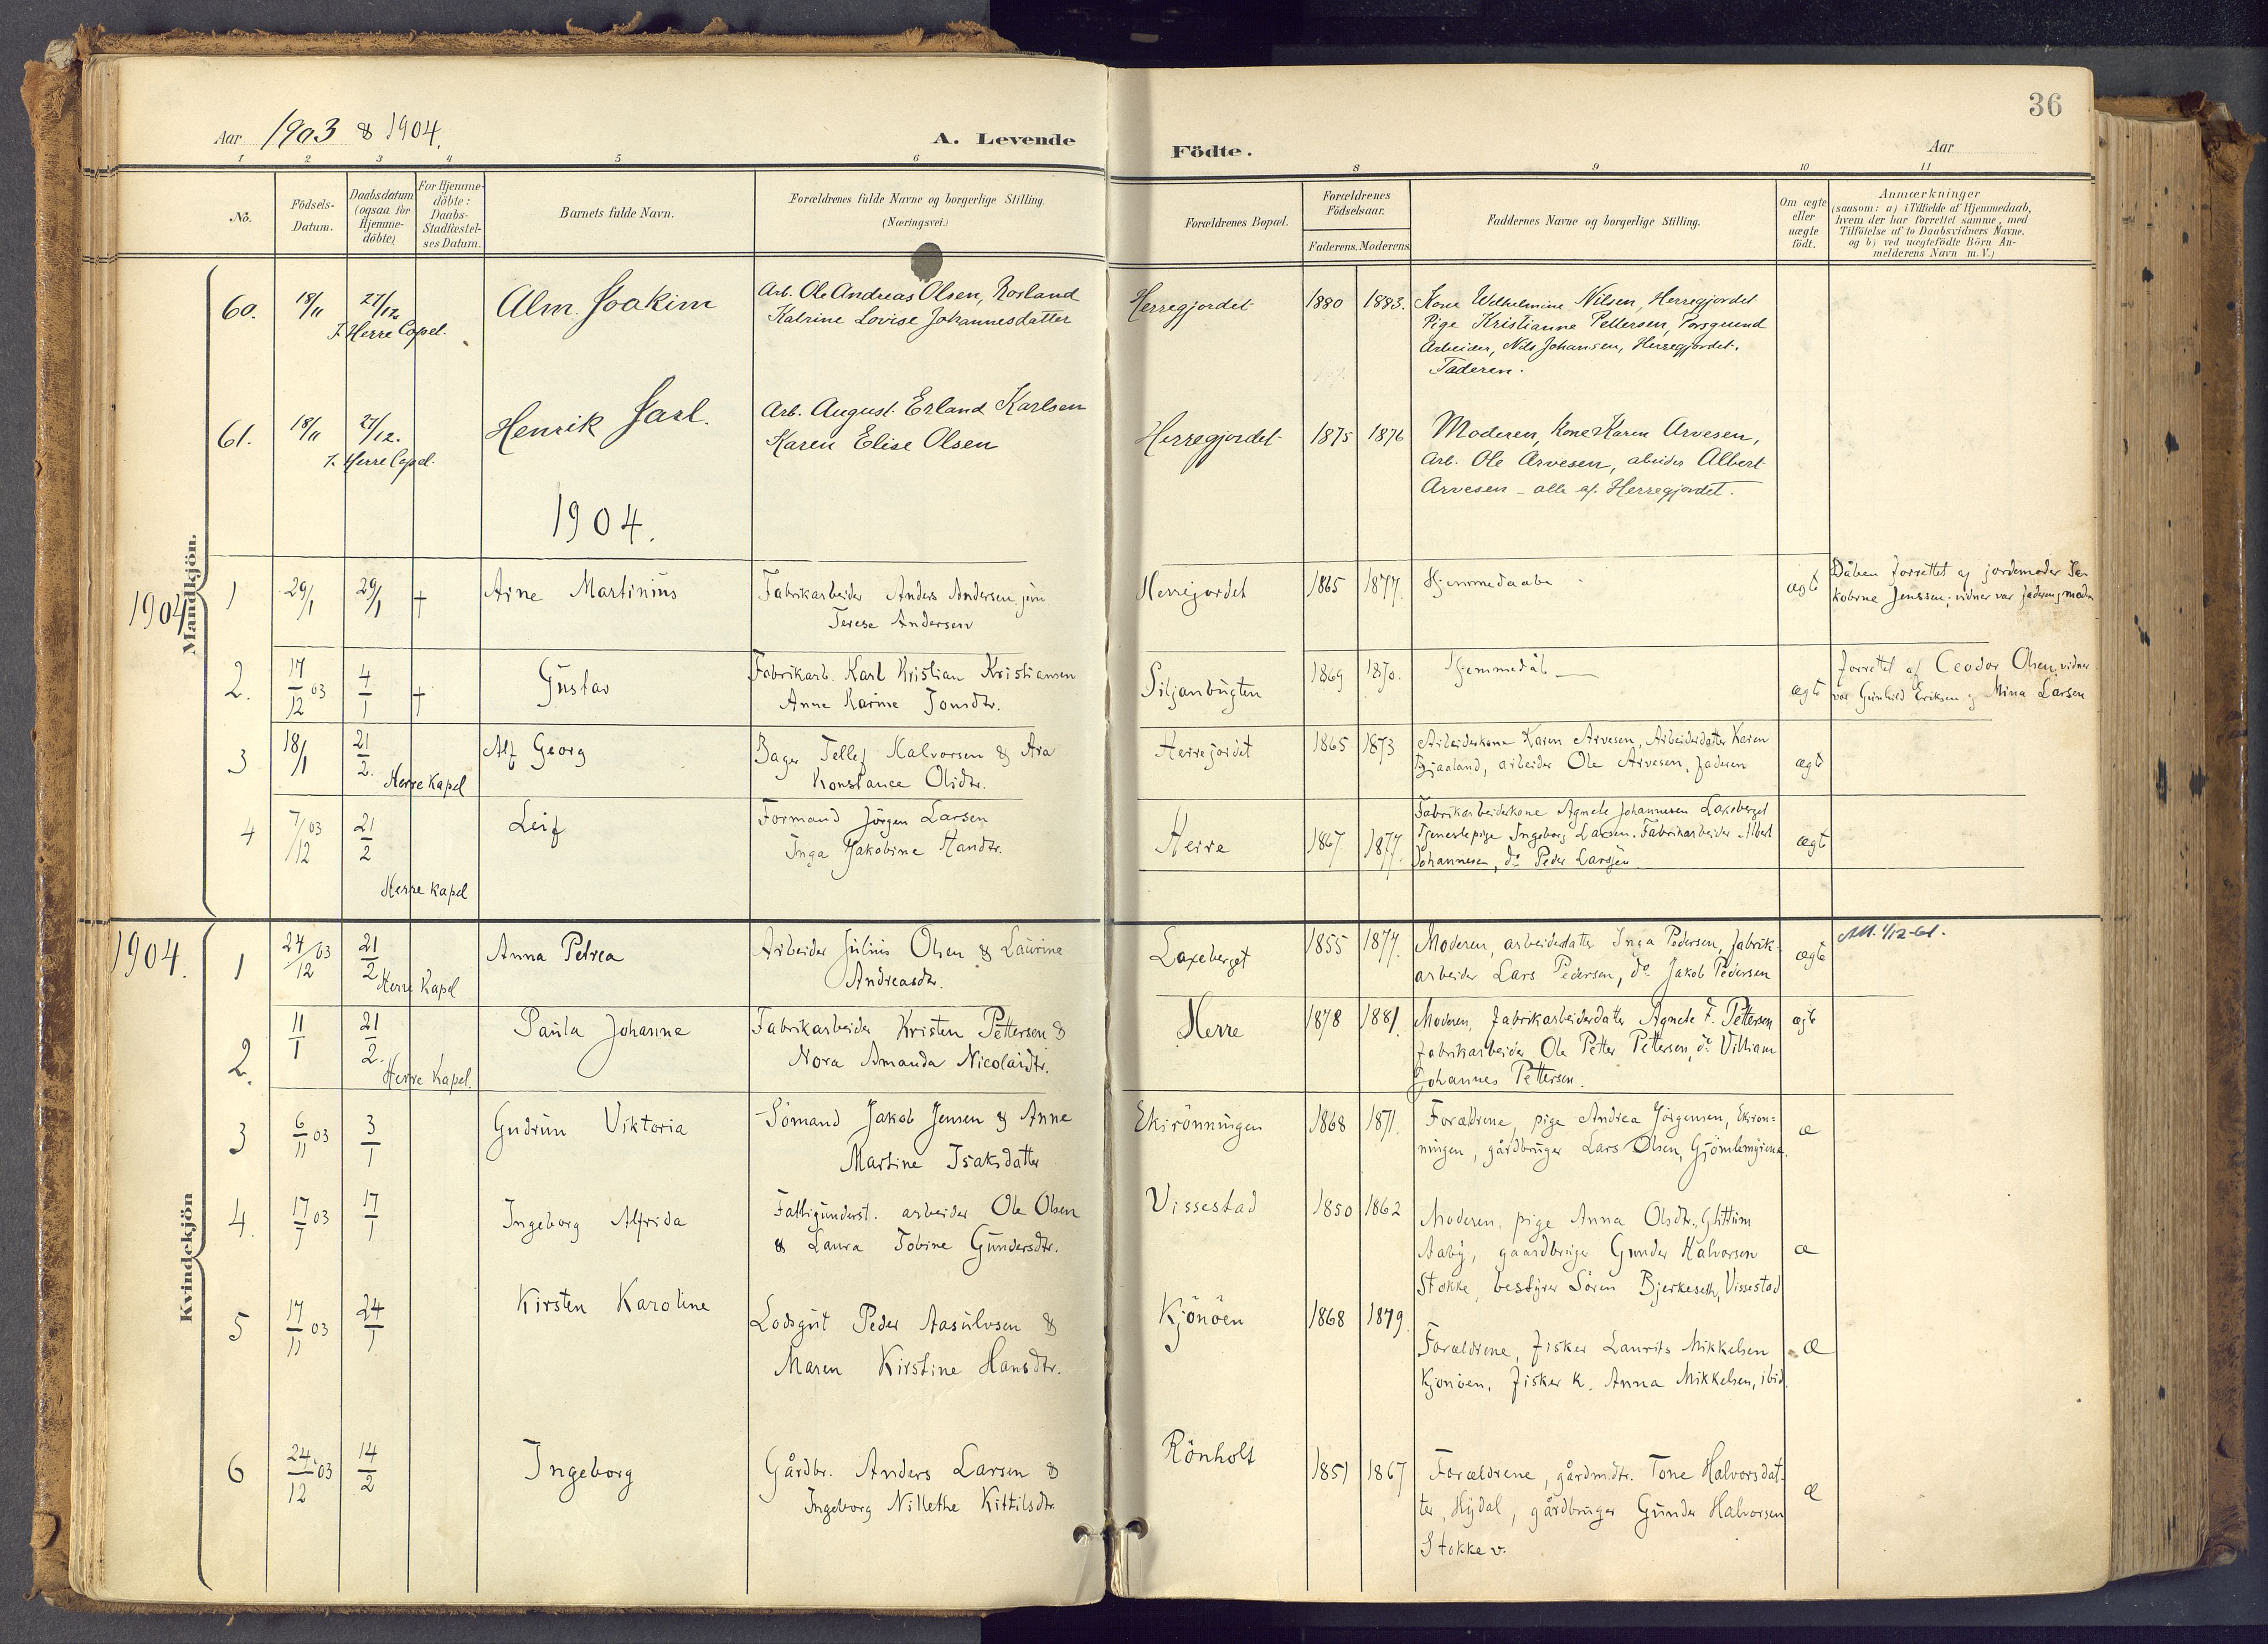 36
Aar 1903 & 1904.
A. Levende Födte.
Aar
1 2 3 4 5 6 8 9 10 11
No.
Födsels-
Datum.
Daabsdatum
(ogsaa for
Hjemme-
döbte)
For Hjemme-
döbte:
Daabs-
Stadfæstel-
ses Datum.
Barnets fulde Navn.
Forældrenes fulde Navne og borgerlige Stilling.
(Næringsvei.)
Forældrenes Bopæl.
Forældrenes
Födselsaar.
Faderens. Moderens
Faddernes Navne og borgerlige Stilling.
Om ægte
eller
uægte
födt.
Anmærkninger
(saasom: a) i Tilfælde af Hjemmedaab,
hvem der har forrettet samme, med
Tilföielse af to Daabsvidners Navne.
og b) ved uægtefödte Börn An-
melderens Navn m.V.)
Mandkjön.
60. 18/11 27/12
I. Herre Capel.
Alm. Joakim
Arb. Ole Andreas Olsen, Rosland
Katrine Lovise Johannesdatter
Herregjordet 1880 1883.
Kone Wilhelmine Nilsen, Herregjordet
Pige Kristianne Pettersen, Porsgrund
Arbeider, Nils Johansen, Herregjordet.
Faderen.
61. 18/11 27/12.
I. Herre Capel.
Henrik Jarl.
Arb. August Erland Karlsen
Karen Elise Olsen
Herregjordet 1875 1876
Moderen, Kone Karen Arvesen,
Arb. Ole Arvesen, abeider Albert
Arvesen - alle af Herregjordet.
1904.
1904
1 29/1 29/1 †
Arne Martinius
Fabrikarbeider Anders Andersen jun
Terese Andersen
Herrejordet 1865 1877.
Hjemmedaabe -
ægt
Dåben forrettet af jordemoder Ja-
kobine Jenssen; vidner var faderen & modn
2. 17/12 03 4/1 †
Gustav
Fabrikarb. Karl Kristian Kristiansen
Anne Karine Jonsdtr.
Siljanbugten 1869 1870.
Hjemmedåb
ægt
forrettet af Ceodor Olsen, vidner
var Gunhild Eriksen og Mina Larsen
3 18/1 21/2.
Herre Kapel
Alf Georg
Bager Tellef Halvorsen & Ara
Konstance Olsdtr.
Herrejordet 1865 1873
Arbeiderkone Karen Arvesen, Arbeiderdatter Karen
Bjaaland, arbeider Ole Arvesen, faderen
ægt
4 7/12 03 21/2
Herre kapel
Leif
Formand Jörgen Larsen
Inga Jakobine Hansdtr.
Herre 1867. 1877.
Fabrikarbeiderkone Agnete Johannesen Laxeberget
Tjenestepige Ingeborg Larsen. Fabrikarbeider Albert
Johannesen, do Peder Larssen
ægt
Kvindekjön
1904.
1 24/12 03 21/2
Herre Kapel
Anna Petrea
Arbeider Julius Olsen & Laurine
Andreasdtr.
Laxeberget 1855 1877.
Moderen, arbeiderdatter Inga Pedersen, fabrik-
arbeider Lars Pedersen, do Jakob Pedersen
ægte
Att. 1/12-61.
2. 11/1 21/2.
Herre Kapel.
Paula Johanne
Fabrikarbeider Kristen Pettersen &
Nora Amanda Nicolaidtr.
Herre 1878 1881
Moderen, fabrikarbeiderdatter Agnete F. Pettersen
fabrikarbeider Ole Petter Pettersen, do Villiam
Johannes Pettersen.
ægte
3 6/11 03 3/1
Gudrun Viktoria
Sömand Jakob Jensen & Anne
Martine Isaksdatter
Ekirönningen 1868 1871.
Forældrene, pige Andrea Jörgensen, Ekirön-
ningen, gårdbruger Lars Olsen, Gjömlemyrene.
æ
4. 17/7 03 17/1
Ingeborg Alfrida
Fattigunderst. arbeider Ole Olsen
& Laura Tobine Gundersdtr.
Vissestad 1850 1862
Moderen, pige Anna Olsdtr., Glittum
Aaby, gaardbruger Gunder Halvorsen
Stokke, bestyrer Sören Bjerkeseth, Vissestad
æ
5 17/11 03 24/1
Kirsten Karoline
Lodsgut Peder Aasulvsen &
Maren Kirstine Hansdtr.
Kjönöen 1868 1879
Forældrene, fisker Laurits Mikkelsen
Kjönöen, fisker k. Anna Mikkelsen, ibid.
æ
6 24/12 03 14/2
Ingeborg
Gårdbr. Anders Larsen &
Ingeborg Nillethe Kittilsdtr.
Rönholt 1851 1867
Forældrene, gårdm.dtr. Tone Halvorsdat-
ter, Hydal, gårdbruger Gunder Halvorsen
Stokke v.
æ